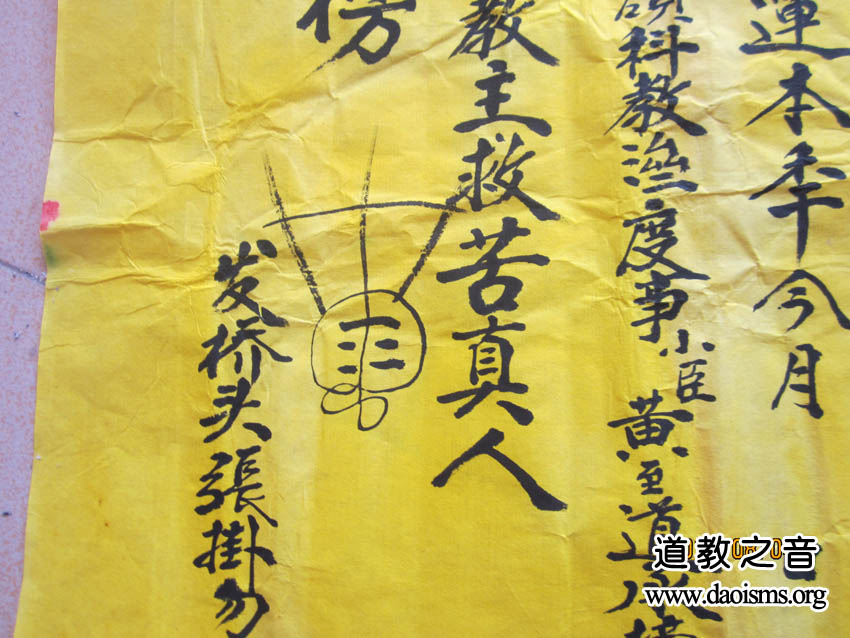 運本秊今月
科教度事小臣黄至道
教主救苦真人
榜
发桥头張掛勿
道教之音
www.daoisms.org